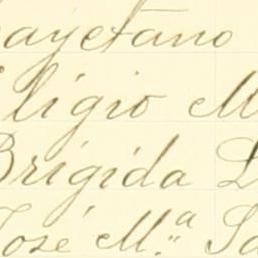 Cayetano
Eligio M
Brigida L
José M.ª Sa